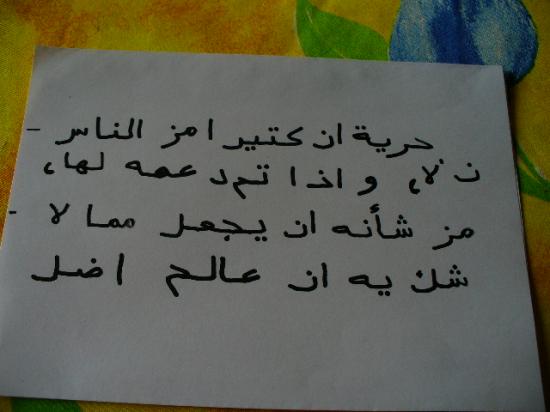 حرية ان كتير امز الناس -
ن لا، و اذا تمد عمه لها،
مز شأنه ان يجعل مما لا -
شك يه ان عالم اضل